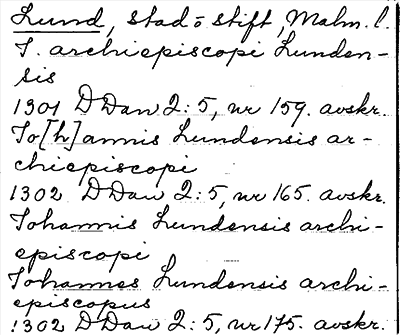 Lund, stad o stift, Malm. l.
J. archiepiscopi Lunden-
sis
1301 DDan 2:5, nr 159. avskr.
Jo[h]annis Lundensis ar-
chiepiscopi
1302 DDan 2:5, nr 165. avskr.
Johannis Lundensis archi-
episcopi
Johannes Lundensis archi-
episcopus
1302 DDan 2:5, nr 175. avskr.